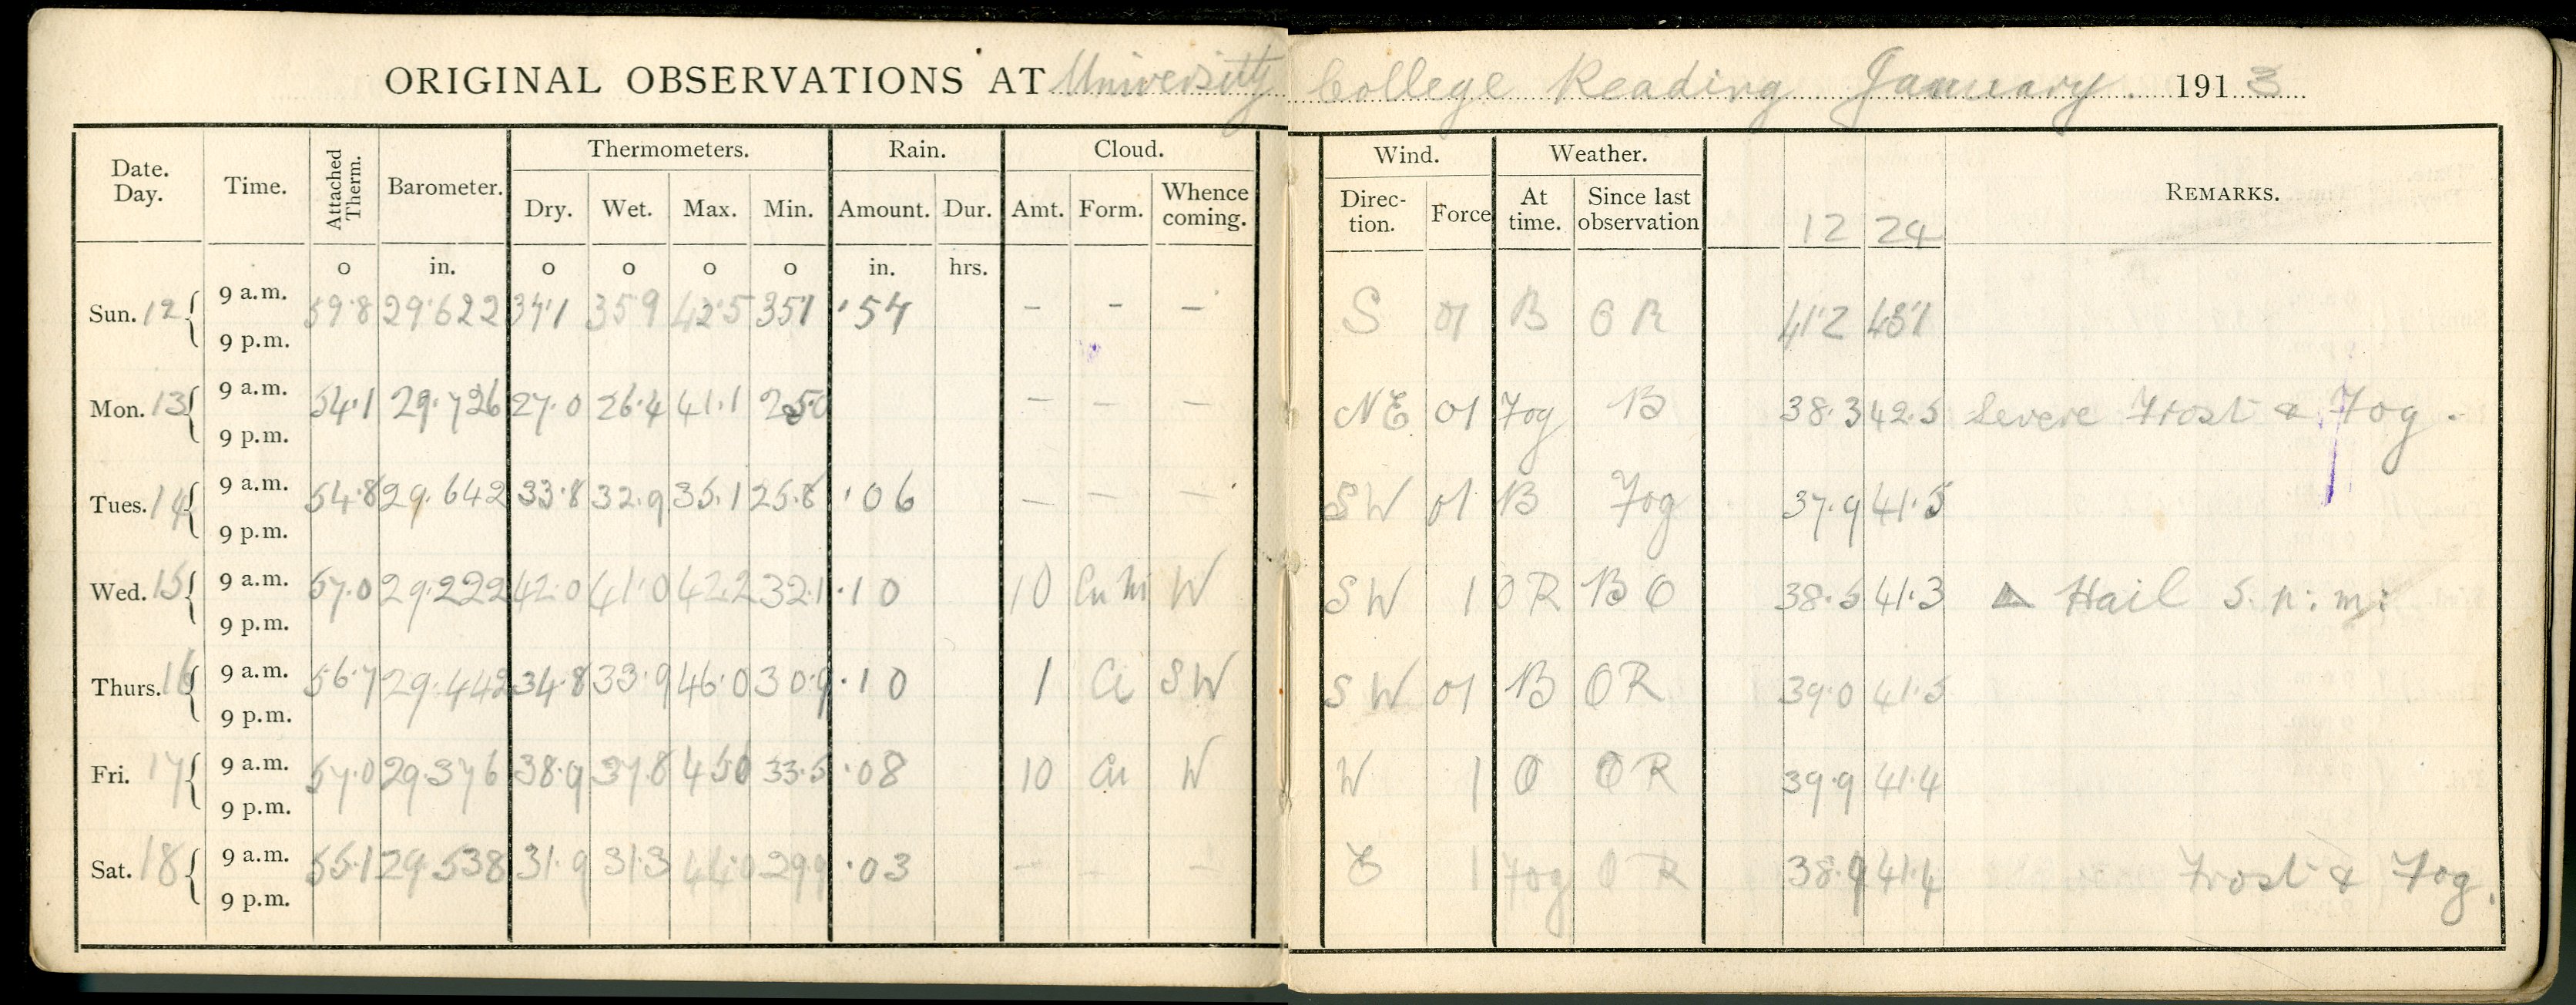 ORIGINAL OBSERVATIONS AT University College Reading January. 1913
Date. Day. Time. Attached Therm. Barometer. Thermometers. Rain. Cloud. Wind. Weather. REMARKS.
Dry. Wet. Max. Min. Amount. Dur. Amt. Form. Whence coming. Direc-tion. Force At time. Since last observation 12 24
o in. o o o o in. hrs.
Sun. 12 9 a.m. 59.8 29.622 37.1 35.9 42.5 35.1 .57 - - - S 01 B O R 41.2 43.1
9 p.m.
Mon. 13 9 a.m. 54.1 29.726 27.0 26.4 41.1 25.0 - - - NE 01 Fog B 38.3 42.5 Severe Frost & Fog.
9 p.m.
Tues. 14 9 a.m. 54.8 29.642 33.8 32.9 35.1 25.8 .06 - - - SW 01 B Fog 37.9 41.5
9 p.m.
Wed. 15 9 a.m. 57.0 29.222 42.0 41.0 42.2 32.1 .10 10 Cu Ni W SW 1 O R B O 38.5 41.3 ▲ Hail 5. p.m.
9 p.m.
Thurs. 16 9 a.m. 56.7 29.442 34.8 33.9 46.0 30.9 .10 1 Ci SW SW 01 B O R 39.0 41.5
9 p.m.
Fri. 17 9 a.m. 57.0 29.376 38.9 37.8 45.0 33.5 .08 10 Cu W W 1 O O R 39.9 41.4
9 p.m.
Sat. 18 9 a.m. 55.1 29.538 31.9 31.3 44.0 29.9 .03 - - - E 1 Fog O R 38.9 41.4 Frost & Fog.
9 p.m.